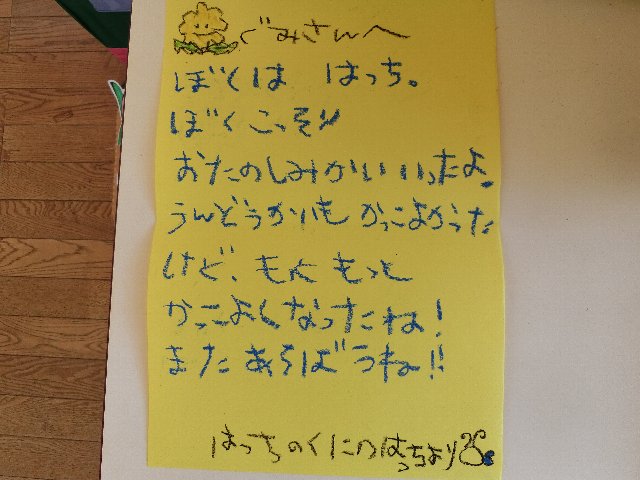 ぐみさんへ
ぼくは はっち。
ぼく こっそり
おたのしみかい いったよ。
うんどうかいも かっこよかった
けど、もっと もっと
かっこよくなったね!
また あそぼうね!!
はっちのくにの はっちより